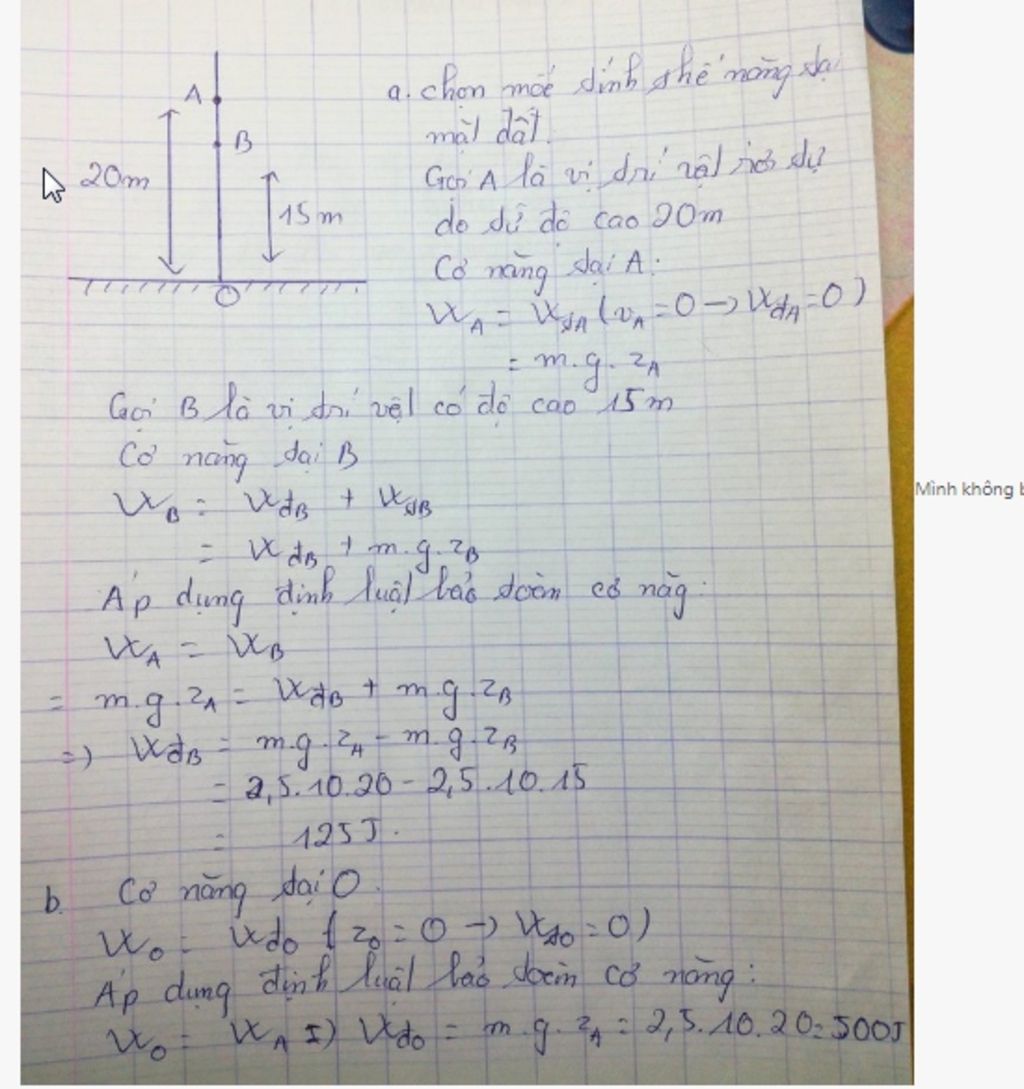 A
B
20m
15m
O
a. chọn mốc tính thế năng tại
mặt đất.
Gọi A là vị trí vật rơi tự
do từ độ cao 20m
Cơ năng tại A:
W_A = W_tA (v_A = 0 → W_đA = 0)
= m.g.z_A
Gọi B là vị trí vật có độ cao 15m
Cơ năng tại B
W_B = W_đB + W_tB
= W_đB + m.g.z_B
Áp dụng định luật bảo toàn cơ năg:
W_A = W_B
= m.g.z_A = W_đB + m.g.z_B
=> W_đB = m.g.z_A - m.g.z_B
= 2,5.10.20 - 2,5.10.15
= 125J.
b. Cơ năng tại O.
W_o = W_đo (z_o = 0 → W_to = 0)
Áp dụng định luật bảo toàn cơ năng:
W_o = W_A => W_đo = m.g.z_A = 2,5.10.20 = 500J
Mình không